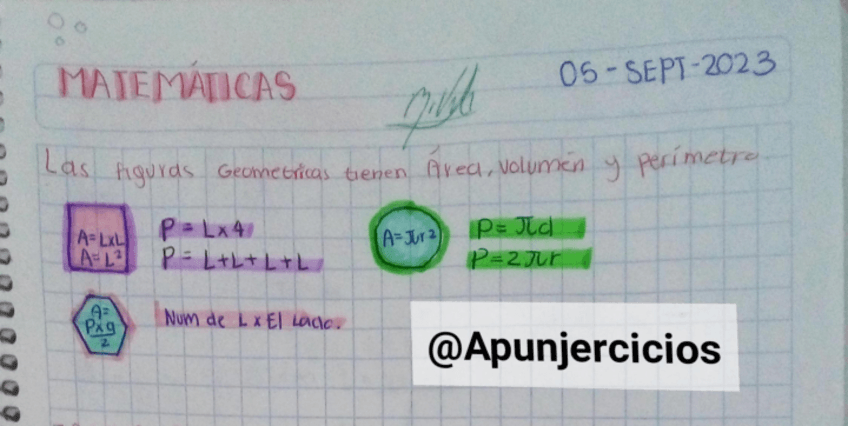 MATEMÁTICAS
05-SEPT-2023
Las figuras Geometricas tienen Área, volumen y perímetro
A=LxL
A=L²
P=Lx4
P=L+L+L+L
A=πr²
P=πd
P=2πr
A=
Pxa
2
Num de L x El Lado.
@Apunjercicios